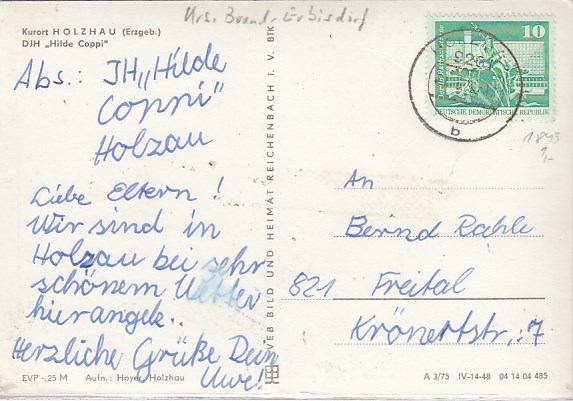 Kurort HOLZHAU (Erzgeb.)
DJH „Hilde Coppi"
Abs.: JH „Hilde
Coppi"
Holzau
Liebe Eltern!
Wir sind in
Holzau bei sehr
schönem Wetter
hier angek..
Herzliche Grüße Dein
Uwe!
EVP -,25 M Aufn.: Hoyer, Holzhau
VEB BILD UND HEIMAT REICHENBACH I. V. BTK
10
DEUTSCHE DEMOKRATISCHE REPUBLIK
b
1843
1,-
An
Bernd Rahle
821 Freital
Krönertstr.: 7
A 3/75 IV-14-48 04 14 04 485